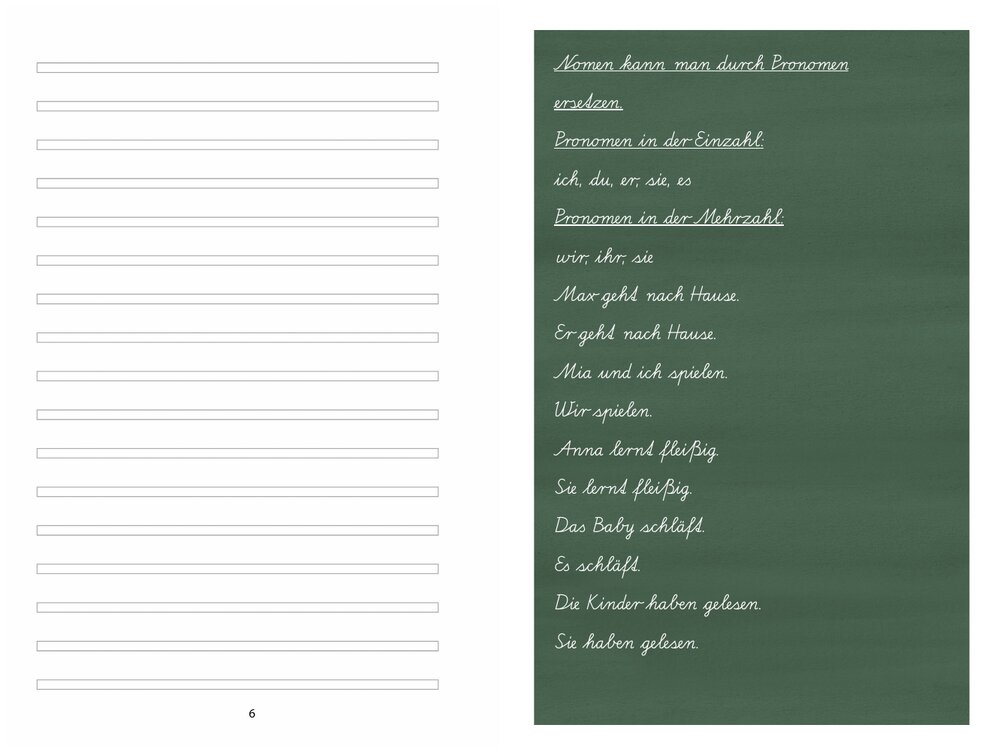 6
Nomen kann man durch Pronomen
ersetzen.
Pronomen in der Einzahl:
ich, du, er, sie, es
Pronomen in der Mehrzahl:
wir, ihr, sie
Max geht nach Hause.
Er geht nach Hause.
Mia und ich spielen.
Wir spielen.
Anna lernt fleißig.
Sie lernt fleißig.
Das Baby schläft.
Es schläft.
Die Kinder haben gelesen.
Sie haben gelesen.